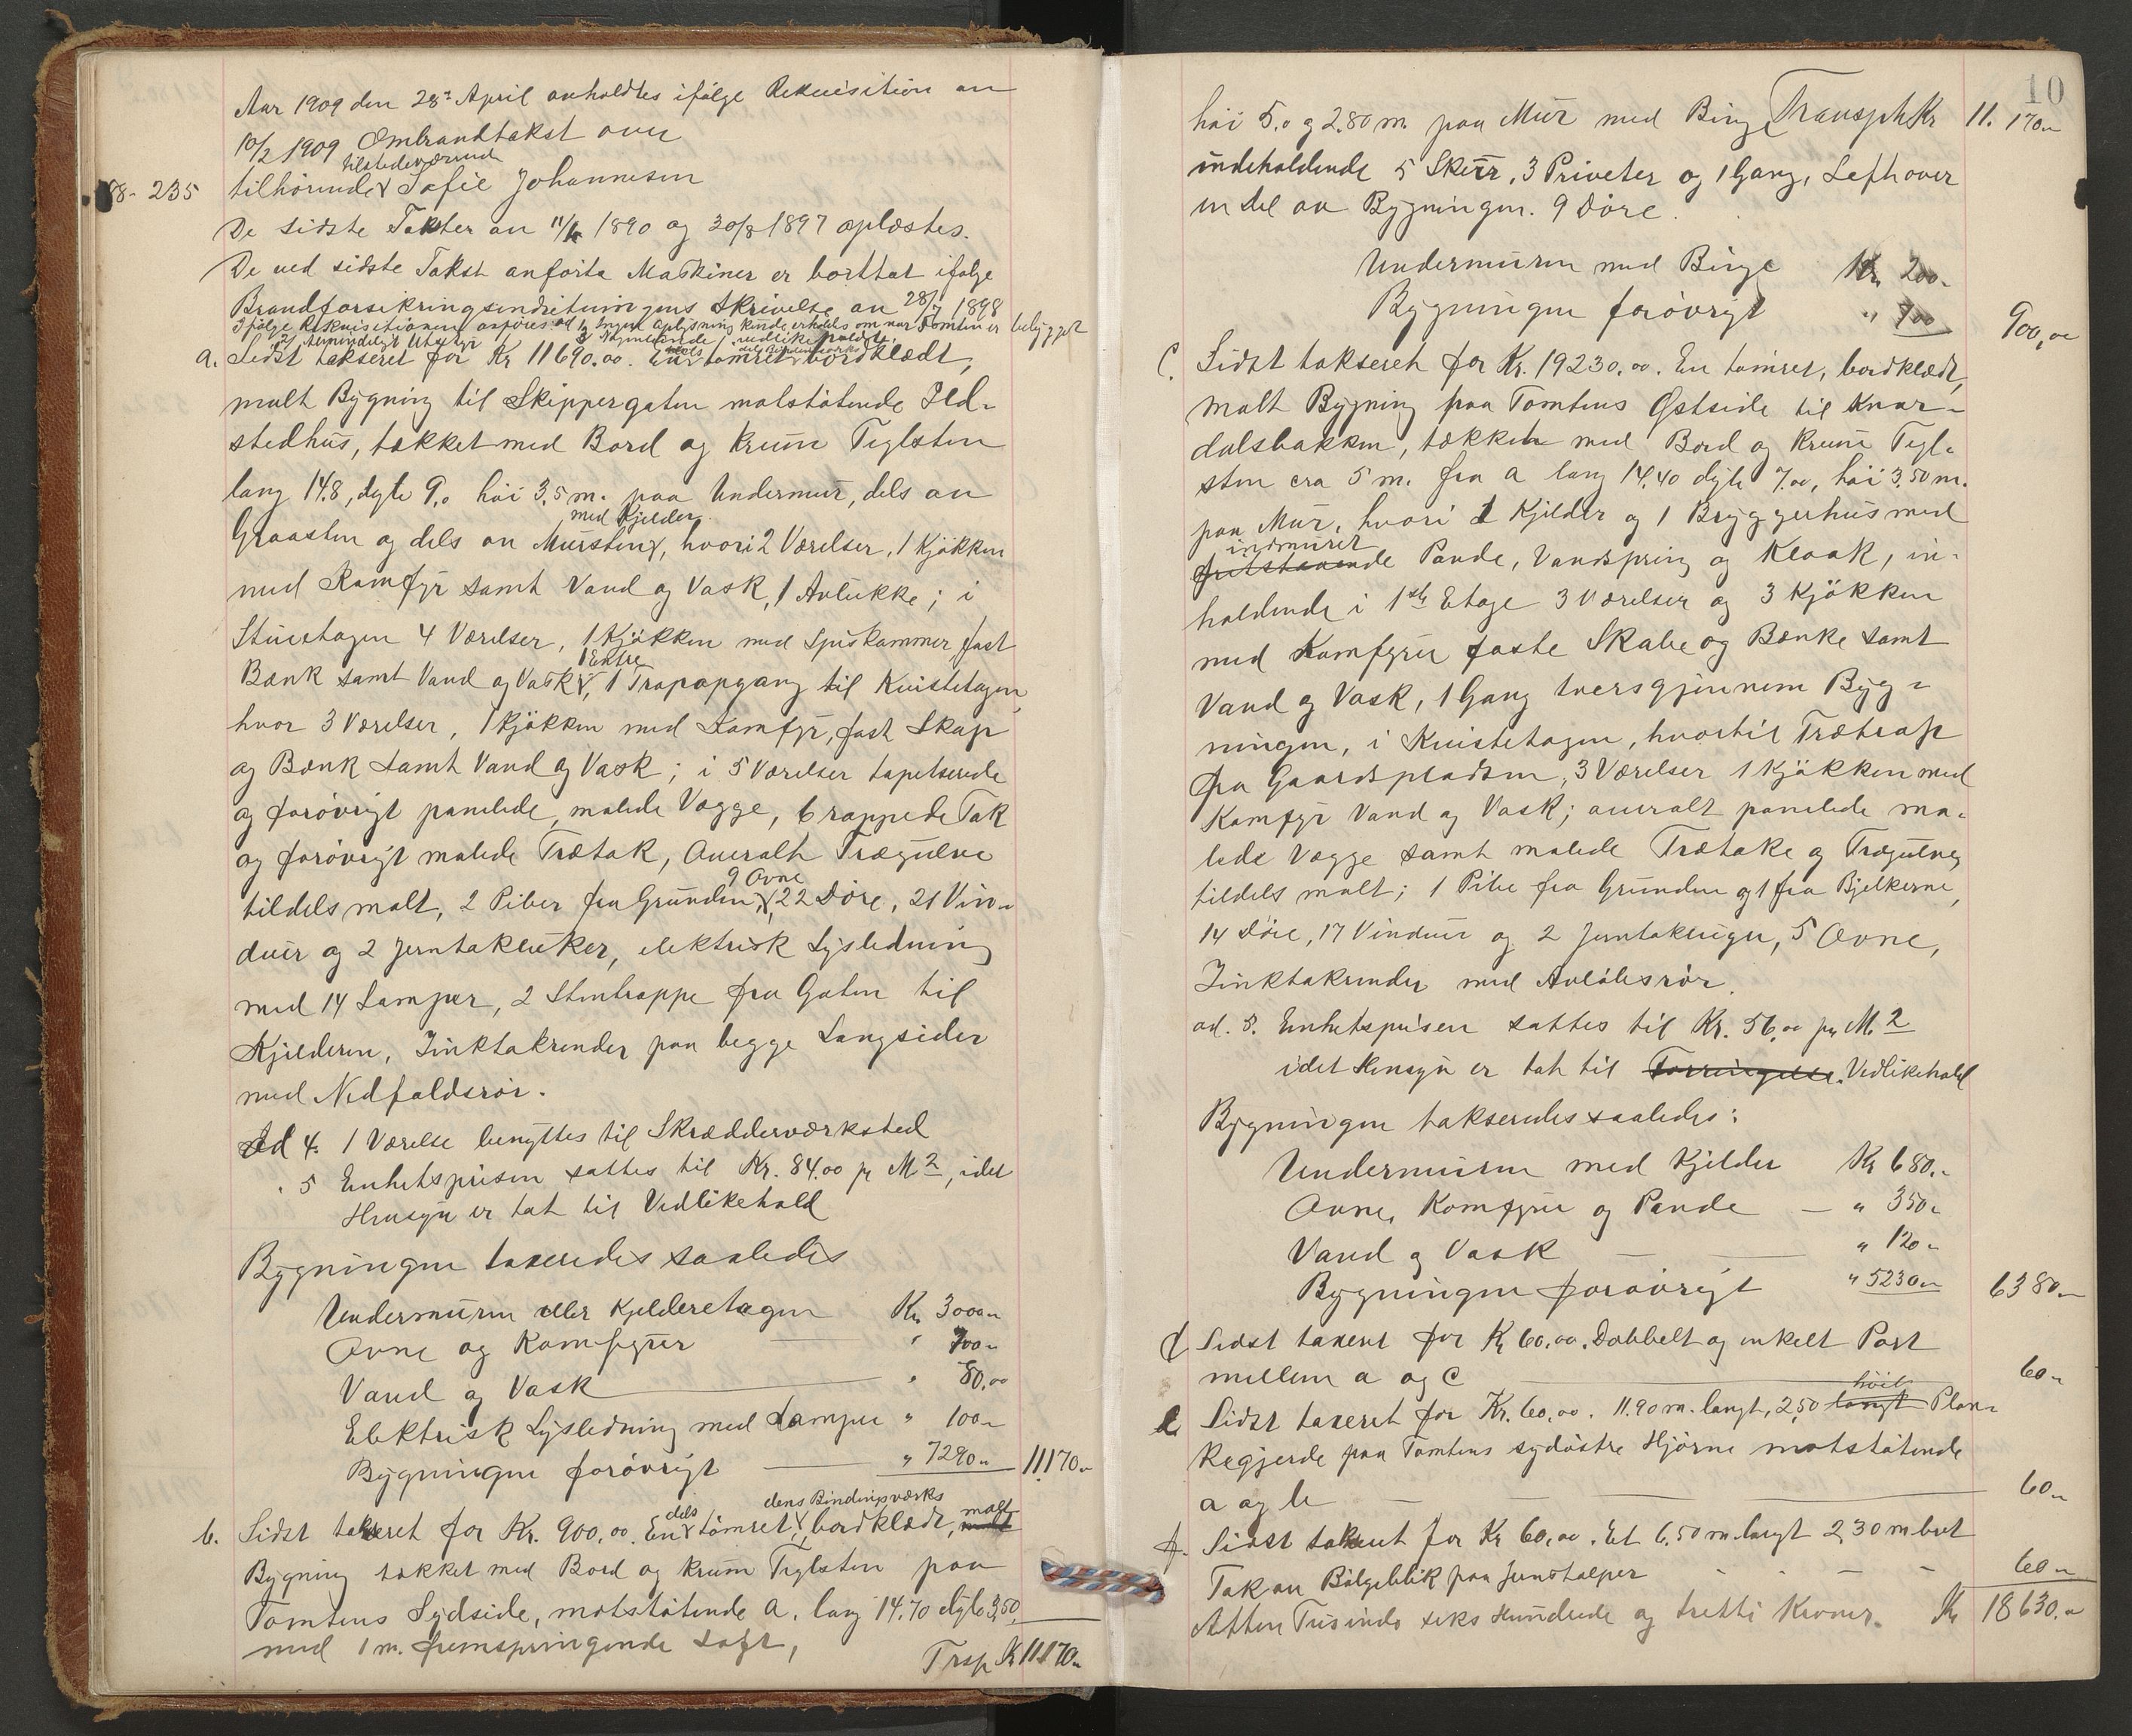 Aar 1909 den 28de April avholdtes ifølge Rekvisition av
10/2 1909 Ombrandtakst over
tilstedeværende
88-235 tilhørende Sofie Johannesen
De sidste Takster av 11/6 1890 og 30/8 1897 oplæstes.
De ved sidste Takst anførte Maskiner er borttat ifølge
Brandforsikringsindretningens Skrivelse av 28/7 1898
Ifølge Rekvisitionen anføres: ad 1, Ingen oplysning kunde erholdes om naar Tomten er bebygget
2, Almindeligt Utstyr 3, vedlikeholdte.
a. Sidst takseret for Kr 11690.00. En dels tømret dels Bindingsverks bordklædt,
malt Bygning til Skippergaten motstøtende Ild-
stedhus, tækket med Bord og krum Teglsten
lang 14.8, dypte 9.0 høi 3.5 m. paa Undermur, dels av
med Kjelder
Graasten og dels av Mursten, hvori 2 Værelser, 1 Kjøkken
med Komfyr samt Vand og Vask, 1 Avlukke; i
Stueetagen 4 Værelser, 1 Kjøkken med Spiskammer, fast
1 Entre
Bænk samt Vand og Vask, 1 Trapopgang til Kvistetagen,
hvor 3 Værelser, 1 Kjøkken med Komfyr, fast Skap
og Bænk samt Vand og Vask; i 5 Værelser tapetserede
og forøvrigt panelede, malede Vægge, 6 rappede Tak
og forøvrigt malede Trætak, Overalt Trægulve
9 Ovne
tildels malt, 2 Piber fra Grunden, 22 Døre, 21 Vin-
duer og 2 Jerntakluker, elektrisk Lysledning
med 14 Lamper, 2 Stentrappe fra Gaten til
Kjelderen, Zinktakrender paa begge Langsider
med Nedfaldsrør.
Ad 4. 1 Værelse benyttes til Skrædderværksted
" 5 Enhetsprisen sattes til Kr. 84.00 pr M2, idet
Hensyn er tat til Vedlikehold
Bygningen taxeredes saaledes
Undermuren eller Kjelderetagen Kr. 3000.-
Ovne og Komfyrer " 700.-
Vand og Vask " 80.00
Elektrisk Lysledning med Lamper " 100.-
Bygningen forøvrigt " 7290.- 11.170.-
dels dens Bindingsværks malt
b. Sidst takseret for Kr. 900.00. En tømret, bordklædt, malt
Bygning tækket med Bord og krum Teglsten paa
Tomtens Sydside, motstøtende a. lang 14.70 dypte 3.50
med 1 m. fremspringende Loft,
Trsp Kr 11.170.-
10
høi 5.0 og 2.80 m. paa Mur med Binge Transpt Kr 11.170.-
indeholdende 5 Skur, 3 Priveter og 1 Gang, Loft over
en del av Bygningen. 9 Døre.
Undermuren med Binge Kr. 200.-
Bygningen forøvrigt " 700 900,00
c. Sidst takseret for Kr. 19230.00. En tømret, bordklædt,
malt Bygning paa Tomtens Østside til Knar-
dalsbakken, tækket med Bord og krum Tegl-
sten cra 5 m. fra a lang 14.40 dypte 7.00, høi 3.50 m.
paa Mur, hvori 1 Kjelder og 1 Bryggerhus med
indmuret
fritstaaende Pande, Vandspring og Kloak, in-
holdende i 1ste Etage 3 Værelser og 3 Kjøkken
med Komfyrer faste Skabe og Bænke samt
Vand og Vask, 1 Gang tversgjennem Byg-
ningen, i Kvistetagen, hvortil Trætrap
fra Gaardspladsen, 3 Værelser 1 Kjøkken med
Komfyr Vand og Vask; overalt panelede ma-
lede Vægge samt malede Trætake og Trægulve,
tildels malt; 1 Pibe fra Grunden og 1 fra Bjelkerne,
14 Døre, 17 Vinduer og 2 Jerntakluger, 5 Ovne,
Zinktakrender med Avløbsrør.
ad. 5. Enhetsprisen sattes til Kr. 56.00 pr M2
idet Hensyn er tat til Forringelse. Vedlikehold
Bygningen takseredes saaledes:
Undermuren med Kjelder Kr 680.-
Ovne, Komfyrer og Pande " 350.-
Vand og Vask " 120.-
Bygningen forøvrigt " 5230.- 6380.-
d Sidst taxeret for Kr 60.00. Dobbelt og enkelt Port
mellem a og c 60.-
høit
e Sidst taxeret for Kr. 60.00. 11.90 m. langt, 2,50 langt Plan-
kegjerde paa Tomtens sydøstre Hjørne motstøtende
a og b 60.-
f. Sidst takseret for Kr 60.00. Et 6.50 m langt 2,30 m bret
Tak av Bølgeblik paa Jernstolper 60.-
Atten Tusinde seks Hundrede og tretti Kroner. Kr 18630.-